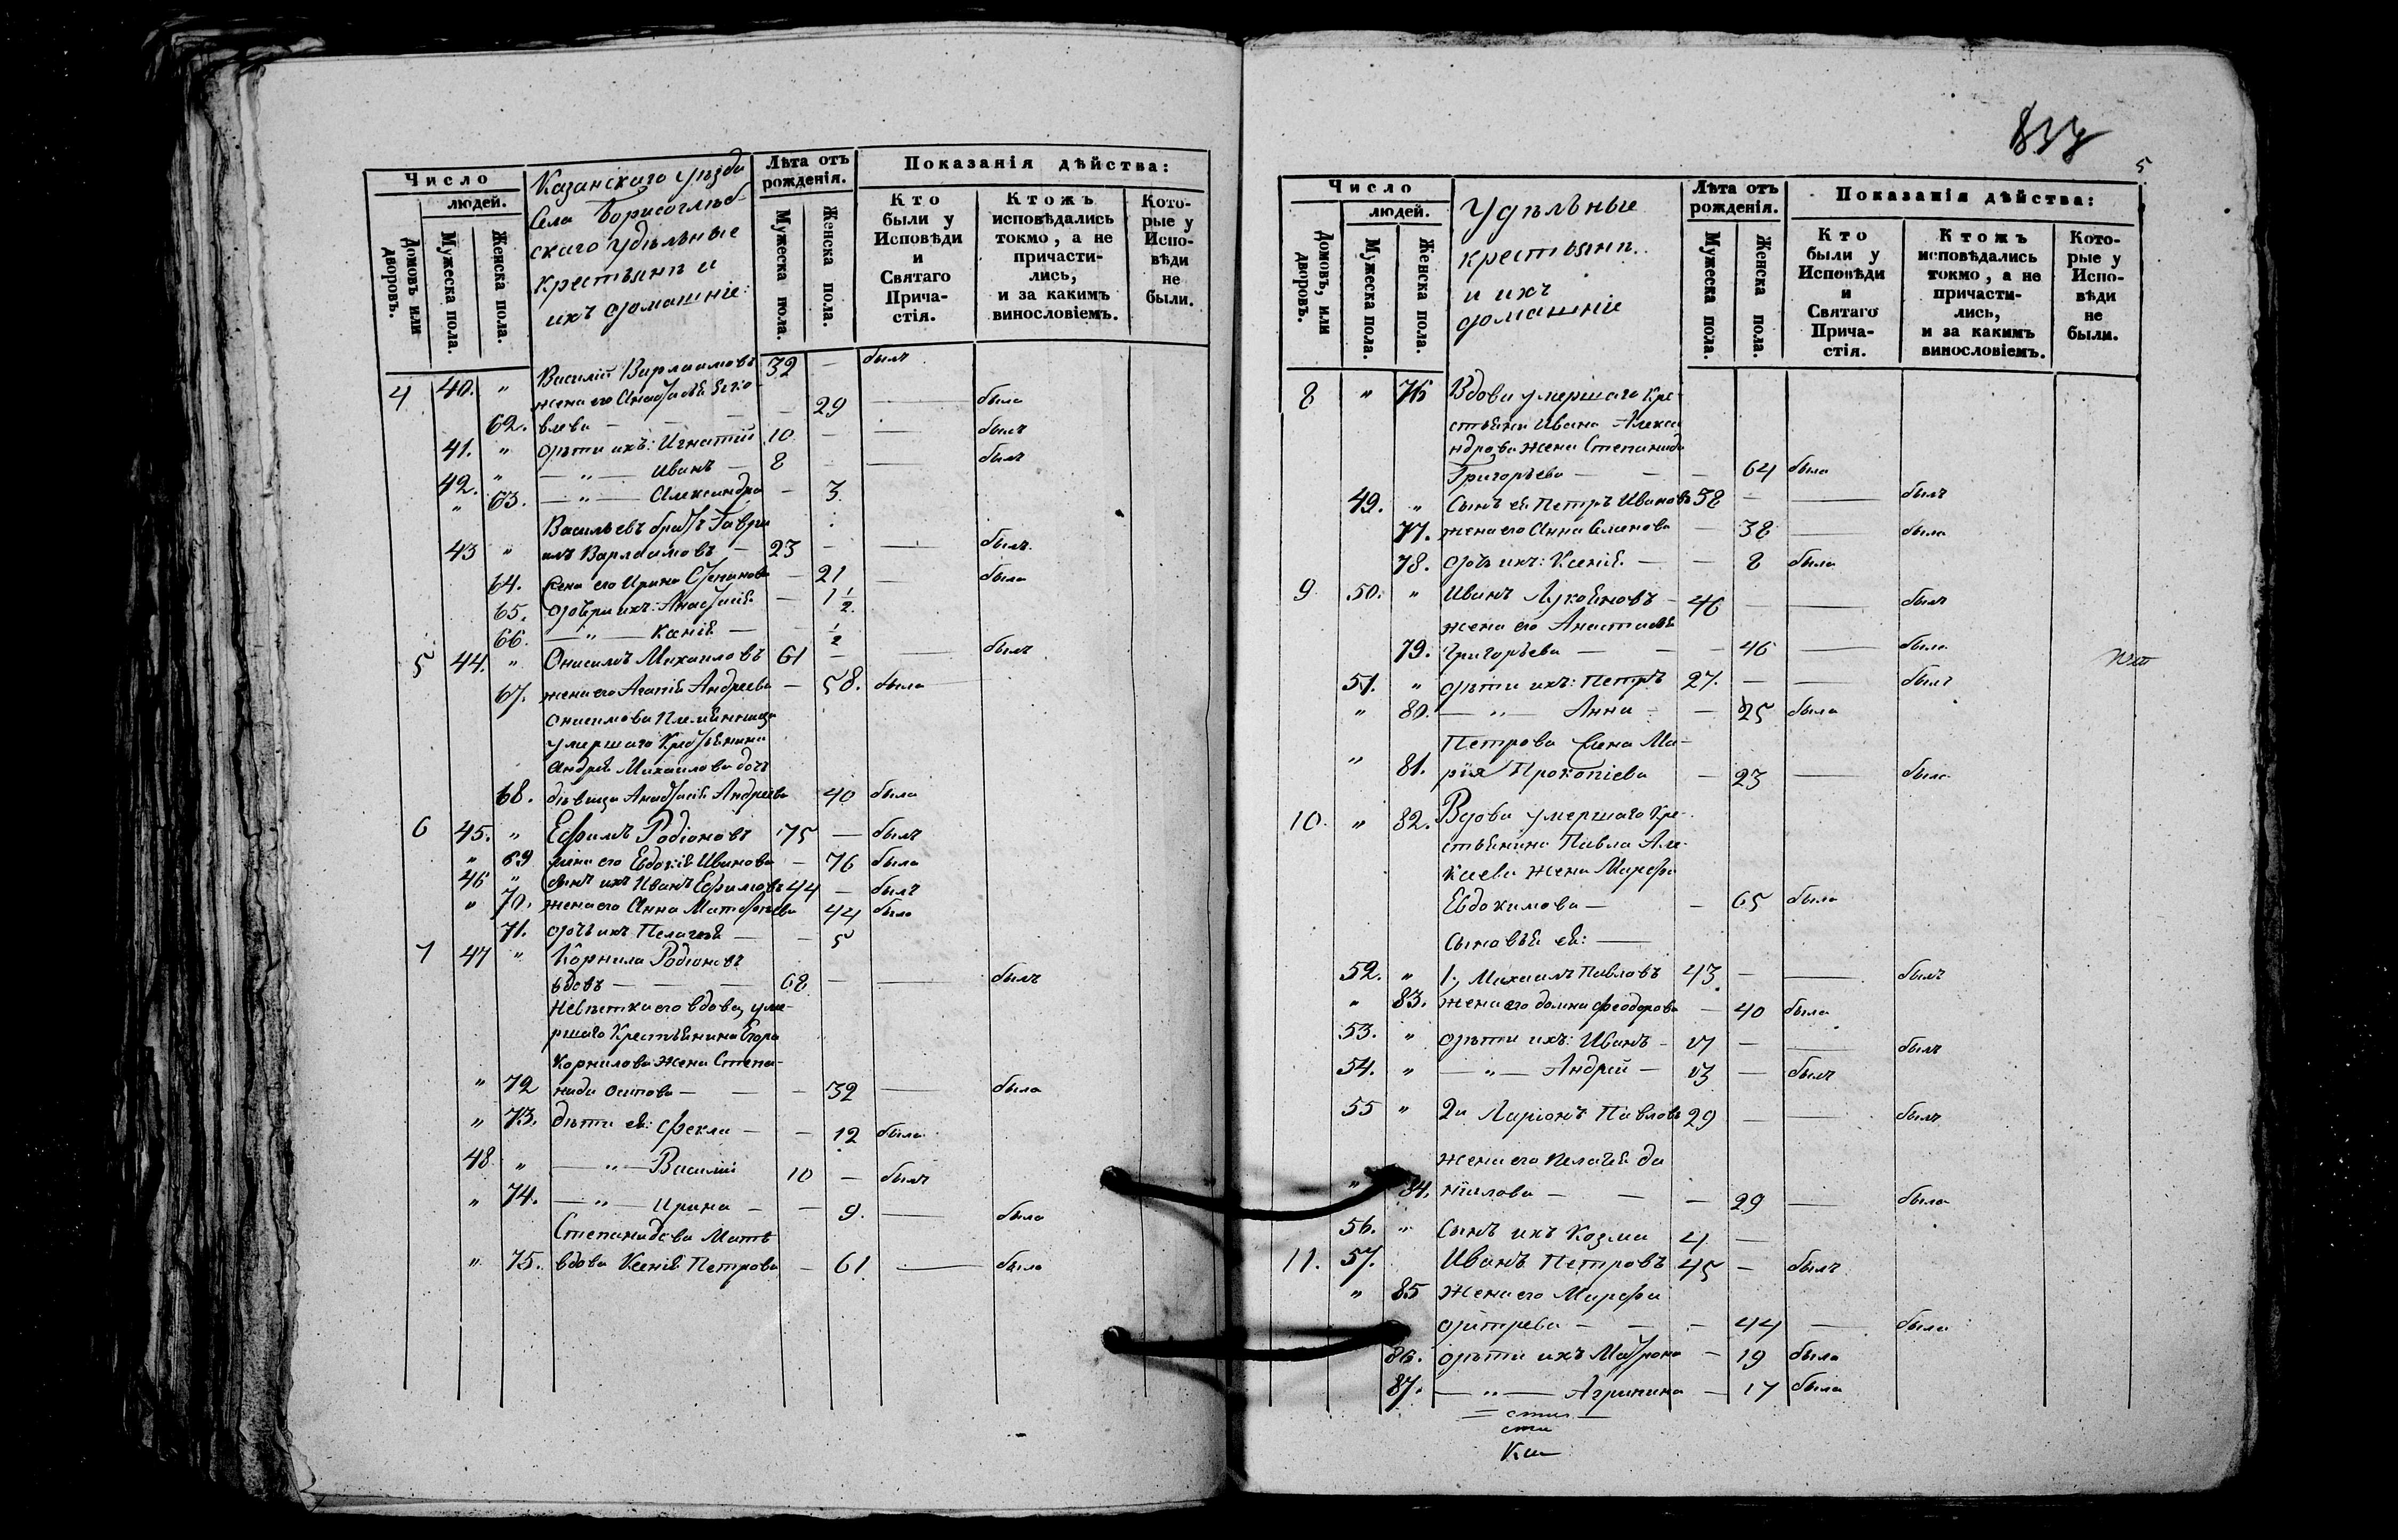 Число
людей.
Домовъ или дворовъ.
Мужеска пола.
Женска пола.
Казанскаго уѣзда
Села Борисоглѣб-
скаго удѣльные
крестьянъ и
ихъ домашніе:
Лѣта отъ рожденія.
Мужеска пола.
Женска пола.
Показанія дѣйства:
Кто были у Исповѣди и Святаго Прича- стія.
Ктожъ исповѣдались токмо, а не причасти- лись, и за какимъ винословіемъ.
Кото- рые у Испо- вѣди не были.
4 40. " Василій Варлаамовъ 32 — былъ
жена его Анастасія Яко-
62. влева — — 29 — была
41. " дѣти ихъ: Игнатій 10 — — былъ
42. " — " — Иванъ — 8 — — былъ
" 63. — " — Александра — 3
Васильевъ братъ Гаври
43 " илъ Варлаамовъ — 23 — — былъ
64. жена его Ирина Степанова — 21 — была
65. дочери ихъ: Анастасія — 1 1/2
66. — " — Ксенія — — 1/2
5 44. " Онисимъ Михаиловъ 61 — — былъ
67. жена его Агапія Андреева — 58. была
Онисимова племянница
умершаго Крестьянина
Андрея Михаилова дочь
68. дѣвица Анастасія Андреева 40 была
6 45. " Ефимъ Родіоновъ 75 — былъ
" 69 жена его Евдокія Иванова — 76 была
46 " сынъ ихъ Иванъ Ефимовъ 44 — былъ
" 70. жена его Анна Матфеева 44 была
71. дочь ихъ Пелагея — — 5
7 47 " Корнила Родіоновъ
вдовъ — — — 68 — — былъ
Невѣстка его вдова, уме-
ршаго Крестьянина Егора
Корнилова жена Степа-
" 72 нида Осипова — — — 32 — была
" 73. дѣти ея: Фекла — — 12 была
48 " — " — Василій 10 — былъ
" 74. — " — Ирина — — 9. — была
Степанидова Мать
" 75. вдова Ксенія Петрова — 61. — была
5
Число
людей.
Домовъ, или дворовъ.
Мужеска пола.
Женска пола.
Удѣльные
крестьянъ.
и ихъ
домашніе
Лѣта отъ рожденія.
Мужеска пола.
Женска пола.
Показанія дѣйства:
Кто были у Исповѣди и Святаго Прича- стія.
Ктожъ исповѣдались токмо, а не причасти- лись, и за какимъ винословіемъ.
Кото- рые у Испо- вѣди не были.
8 " 76 Вдова умершаго Кре-
стьянина Ивана Алекса
ндрова жена Степанида
Григорьева — — — 64 была
49. " Сынъ ея Петръ Ивановъ 38 — — былъ
77. жена его Анна Семенова — 38 — была
78. дочь ихъ: Ксенія — — 8 была
9 50. " Иванъ Лукояновъ — 46 — — былъ
жена его Анастасія
79. Григорьева — — — 46 — была
51. " дѣти ихъ: Петръ 27. — — былъ
" 80. — " — Анна — — 25 была
Петрова жена Ма-
" 81. рія Прокопіева — 23 — была
10. " 82. Вдова умершаго Кре-
стьянина Павла Але-
ксеева жена Марфа
Евдокимова — — 65 была
Сыновья ея: —
52. " 1, Михаилъ Павловъ 43 — — былъ
" 83. жена его Домна Феодорова — 40 была
53. " дѣти ихъ: Иванъ — 17 — — былъ
54. " — " — Андрей — 13 — былъ
55 " 2й Ларіонъ Павловъ 29 — — былъ
жена его Пелагея Да
" 84. ніилова — — — 29 — была
56. " Сынъ ихъ Козма 4 —
11. 57. Иванъ Петровъ 45 — былъ
" 85 жена его Марфа
Дмитрева — — — 44 — была
86. дѣти ихъ Матрона — 19 была
87. — " — Агрипина — 17 была